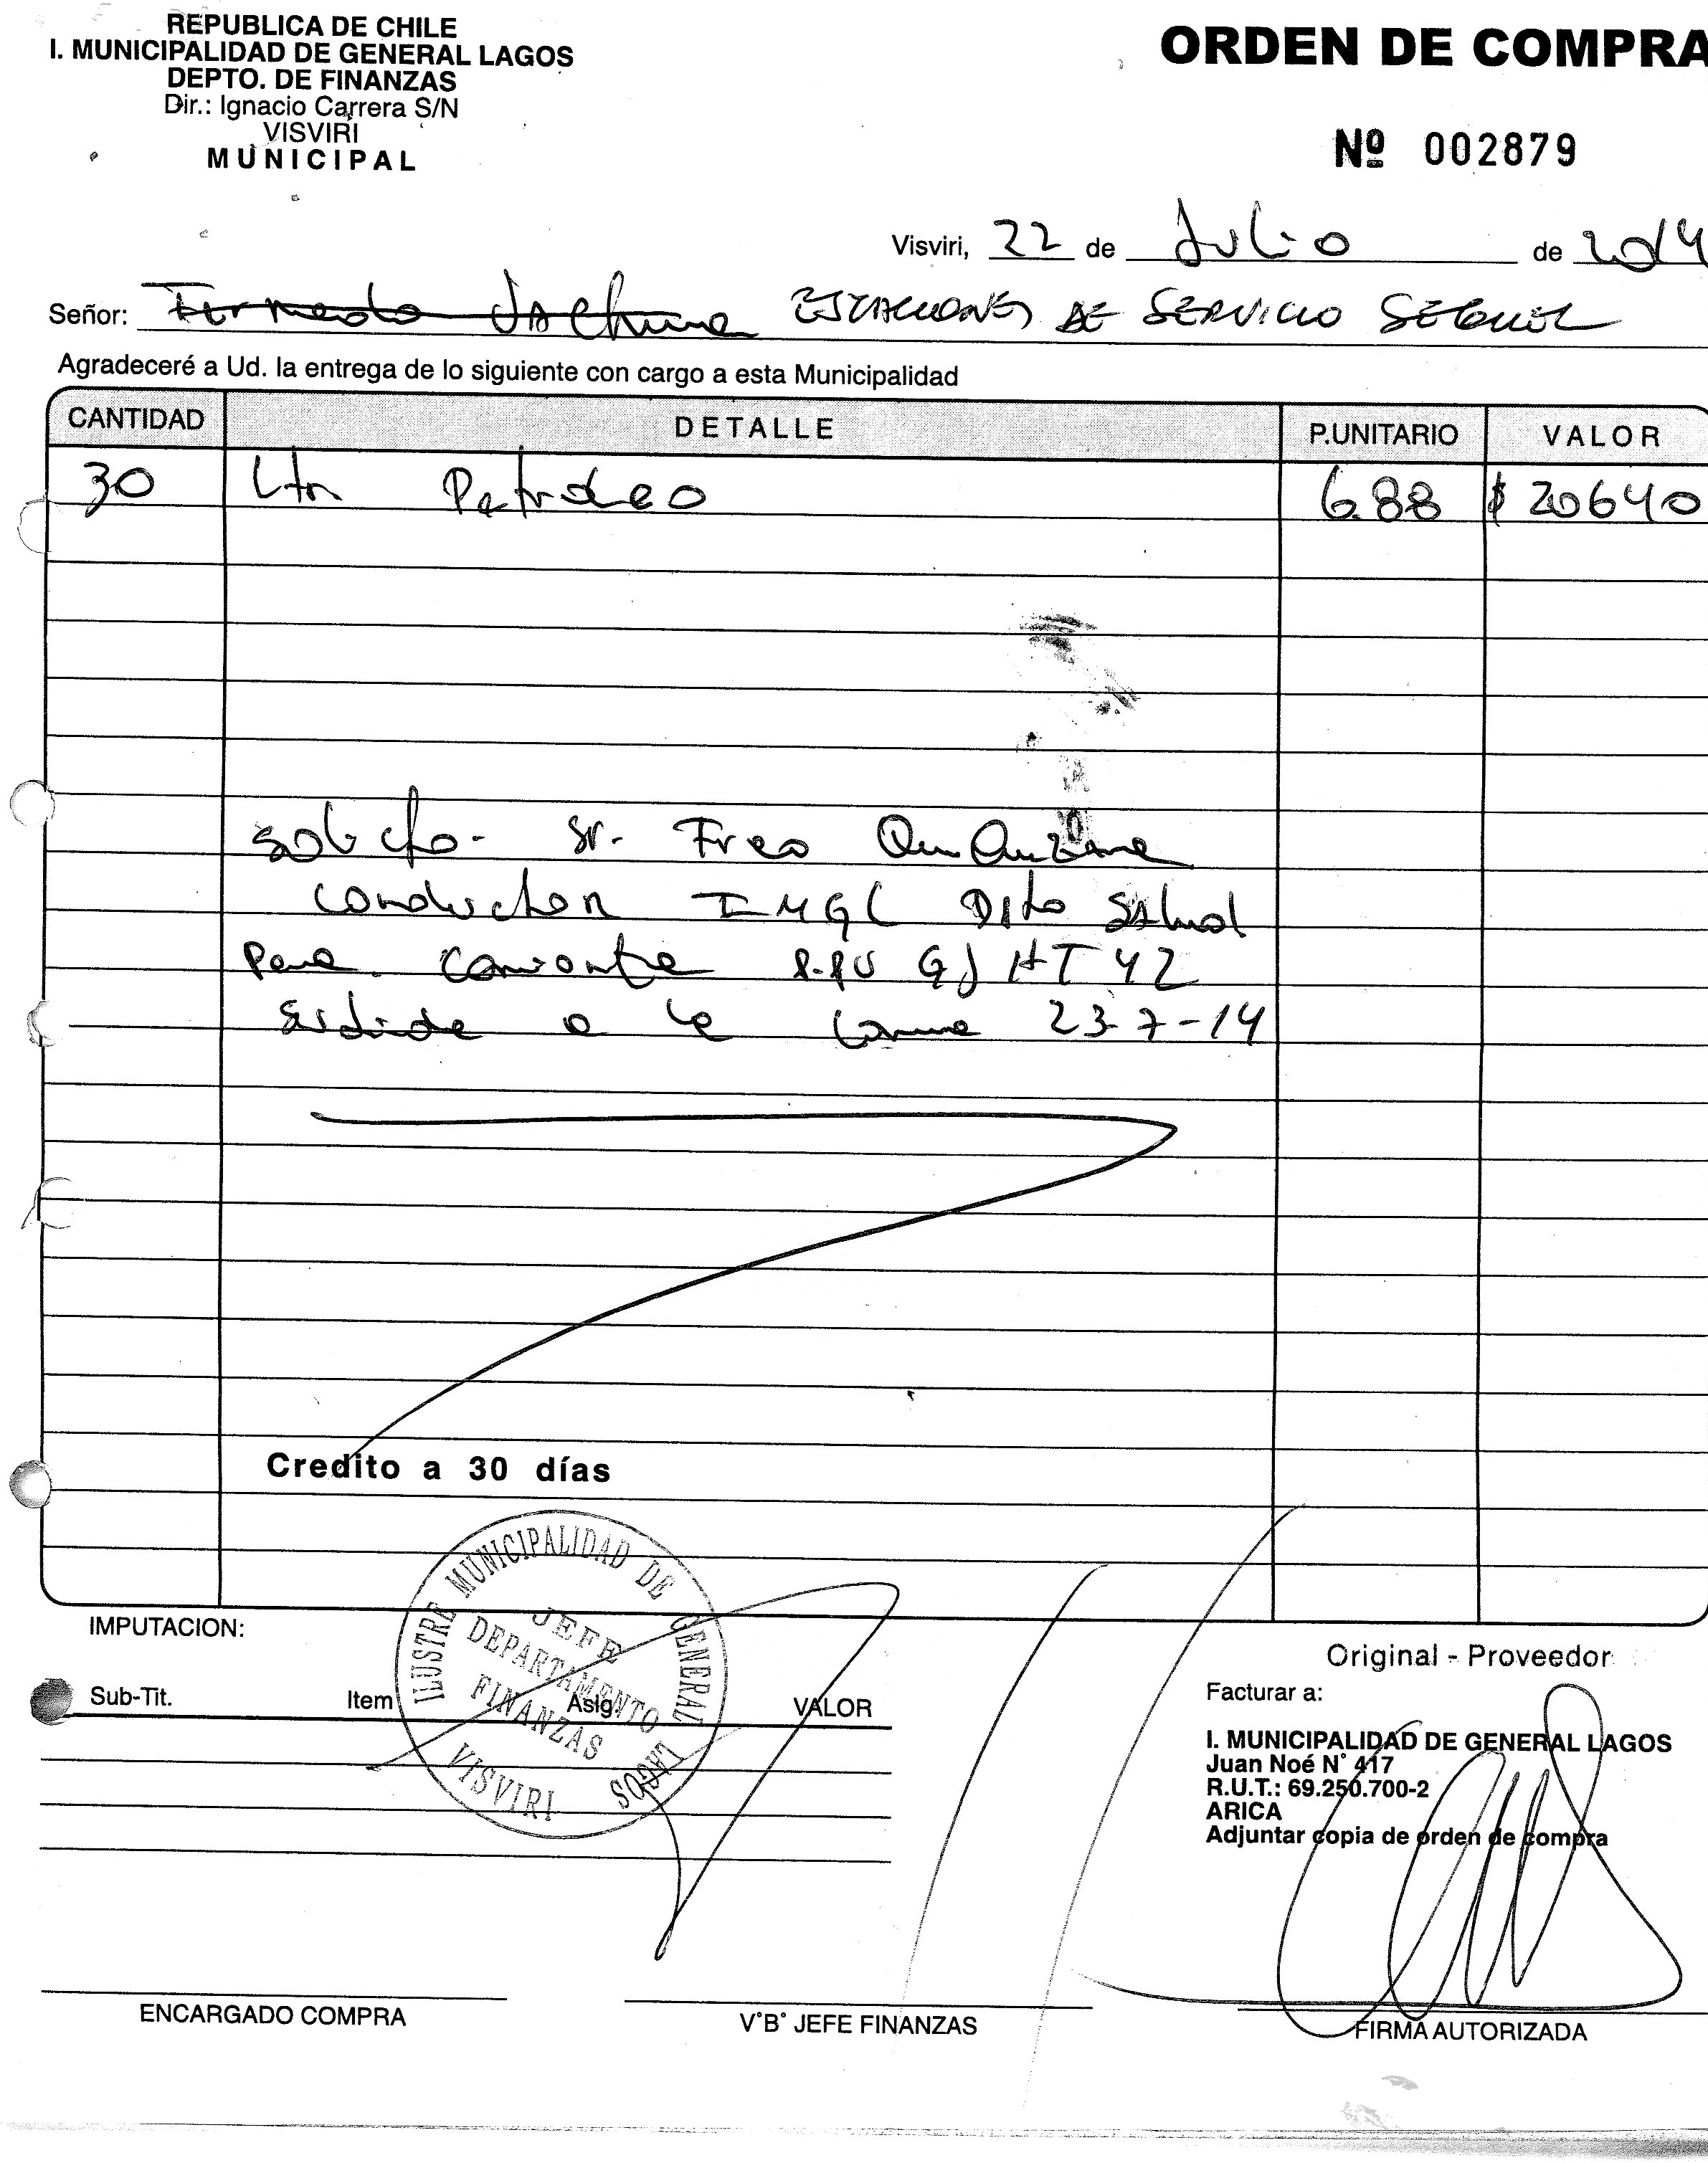 REPUBLICA DE CHILE
I. MUNICIPALIDAD DE GENERAL LAGOS
DEPTO. DE FINANZAS
Dir.: Ignacio Carrera S/N
VISVIRI
MUNICIPAL
ORDEN DE COMPRA
Nº 002879
Visviri, 22 de Julio de 2014
Señor: ESTACIONES DE SERVICIO
Agradeceré a Ud. la entrega de lo siguiente con cargo a esta Municipalidad
CANTIDAD DETALLE P.UNITARIO VALOR
30 Ltr Petroleo 688 $ 20640
Sr.
conductor IMGL Dpto Salud
para camioneta P.PU GJ HT 42
a la 23-7-14
Credito a 30 días
ILUSTRE MUNICIPALIDAD DE GENERAL LAGOS
JEFE
DEPARTAMENTO
FINANZAS
VISVIRI
IMPUTACION:
Sub-Tit. Item Asig. VALOR
Original - Proveedor
Facturar a:
I. MUNICIPALIDAD DE GENERAL LAGOS
Juan Noé N° 417
R.U.T.: 69.250.700-2
ARICA
Adjuntar copia de orden de compra
ENCARGADO COMPRA
V°B° JEFE FINANZAS
FIRMA AUTORIZADA